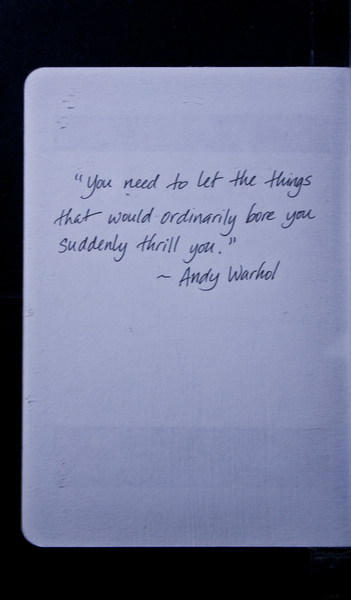 "You need to let the things
that would ordinarily bore you
suddenly thrill you."
~ Andy Warhol